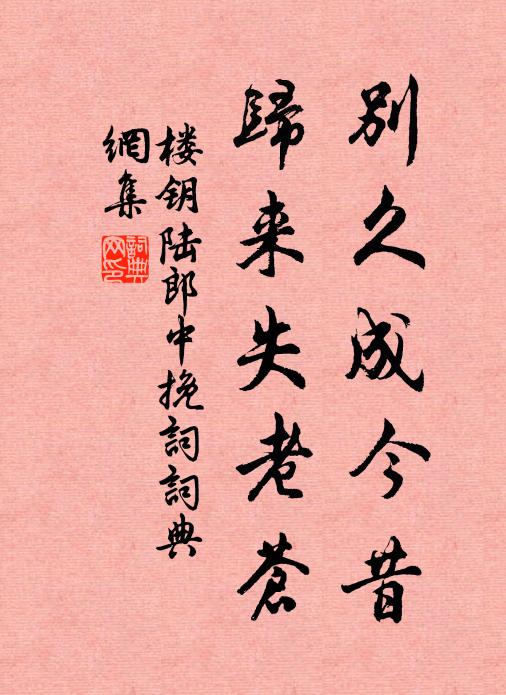 別久成今昔
歸来失老蒼
楼钥陆郎中挽詞詞典
網集
詞典网印